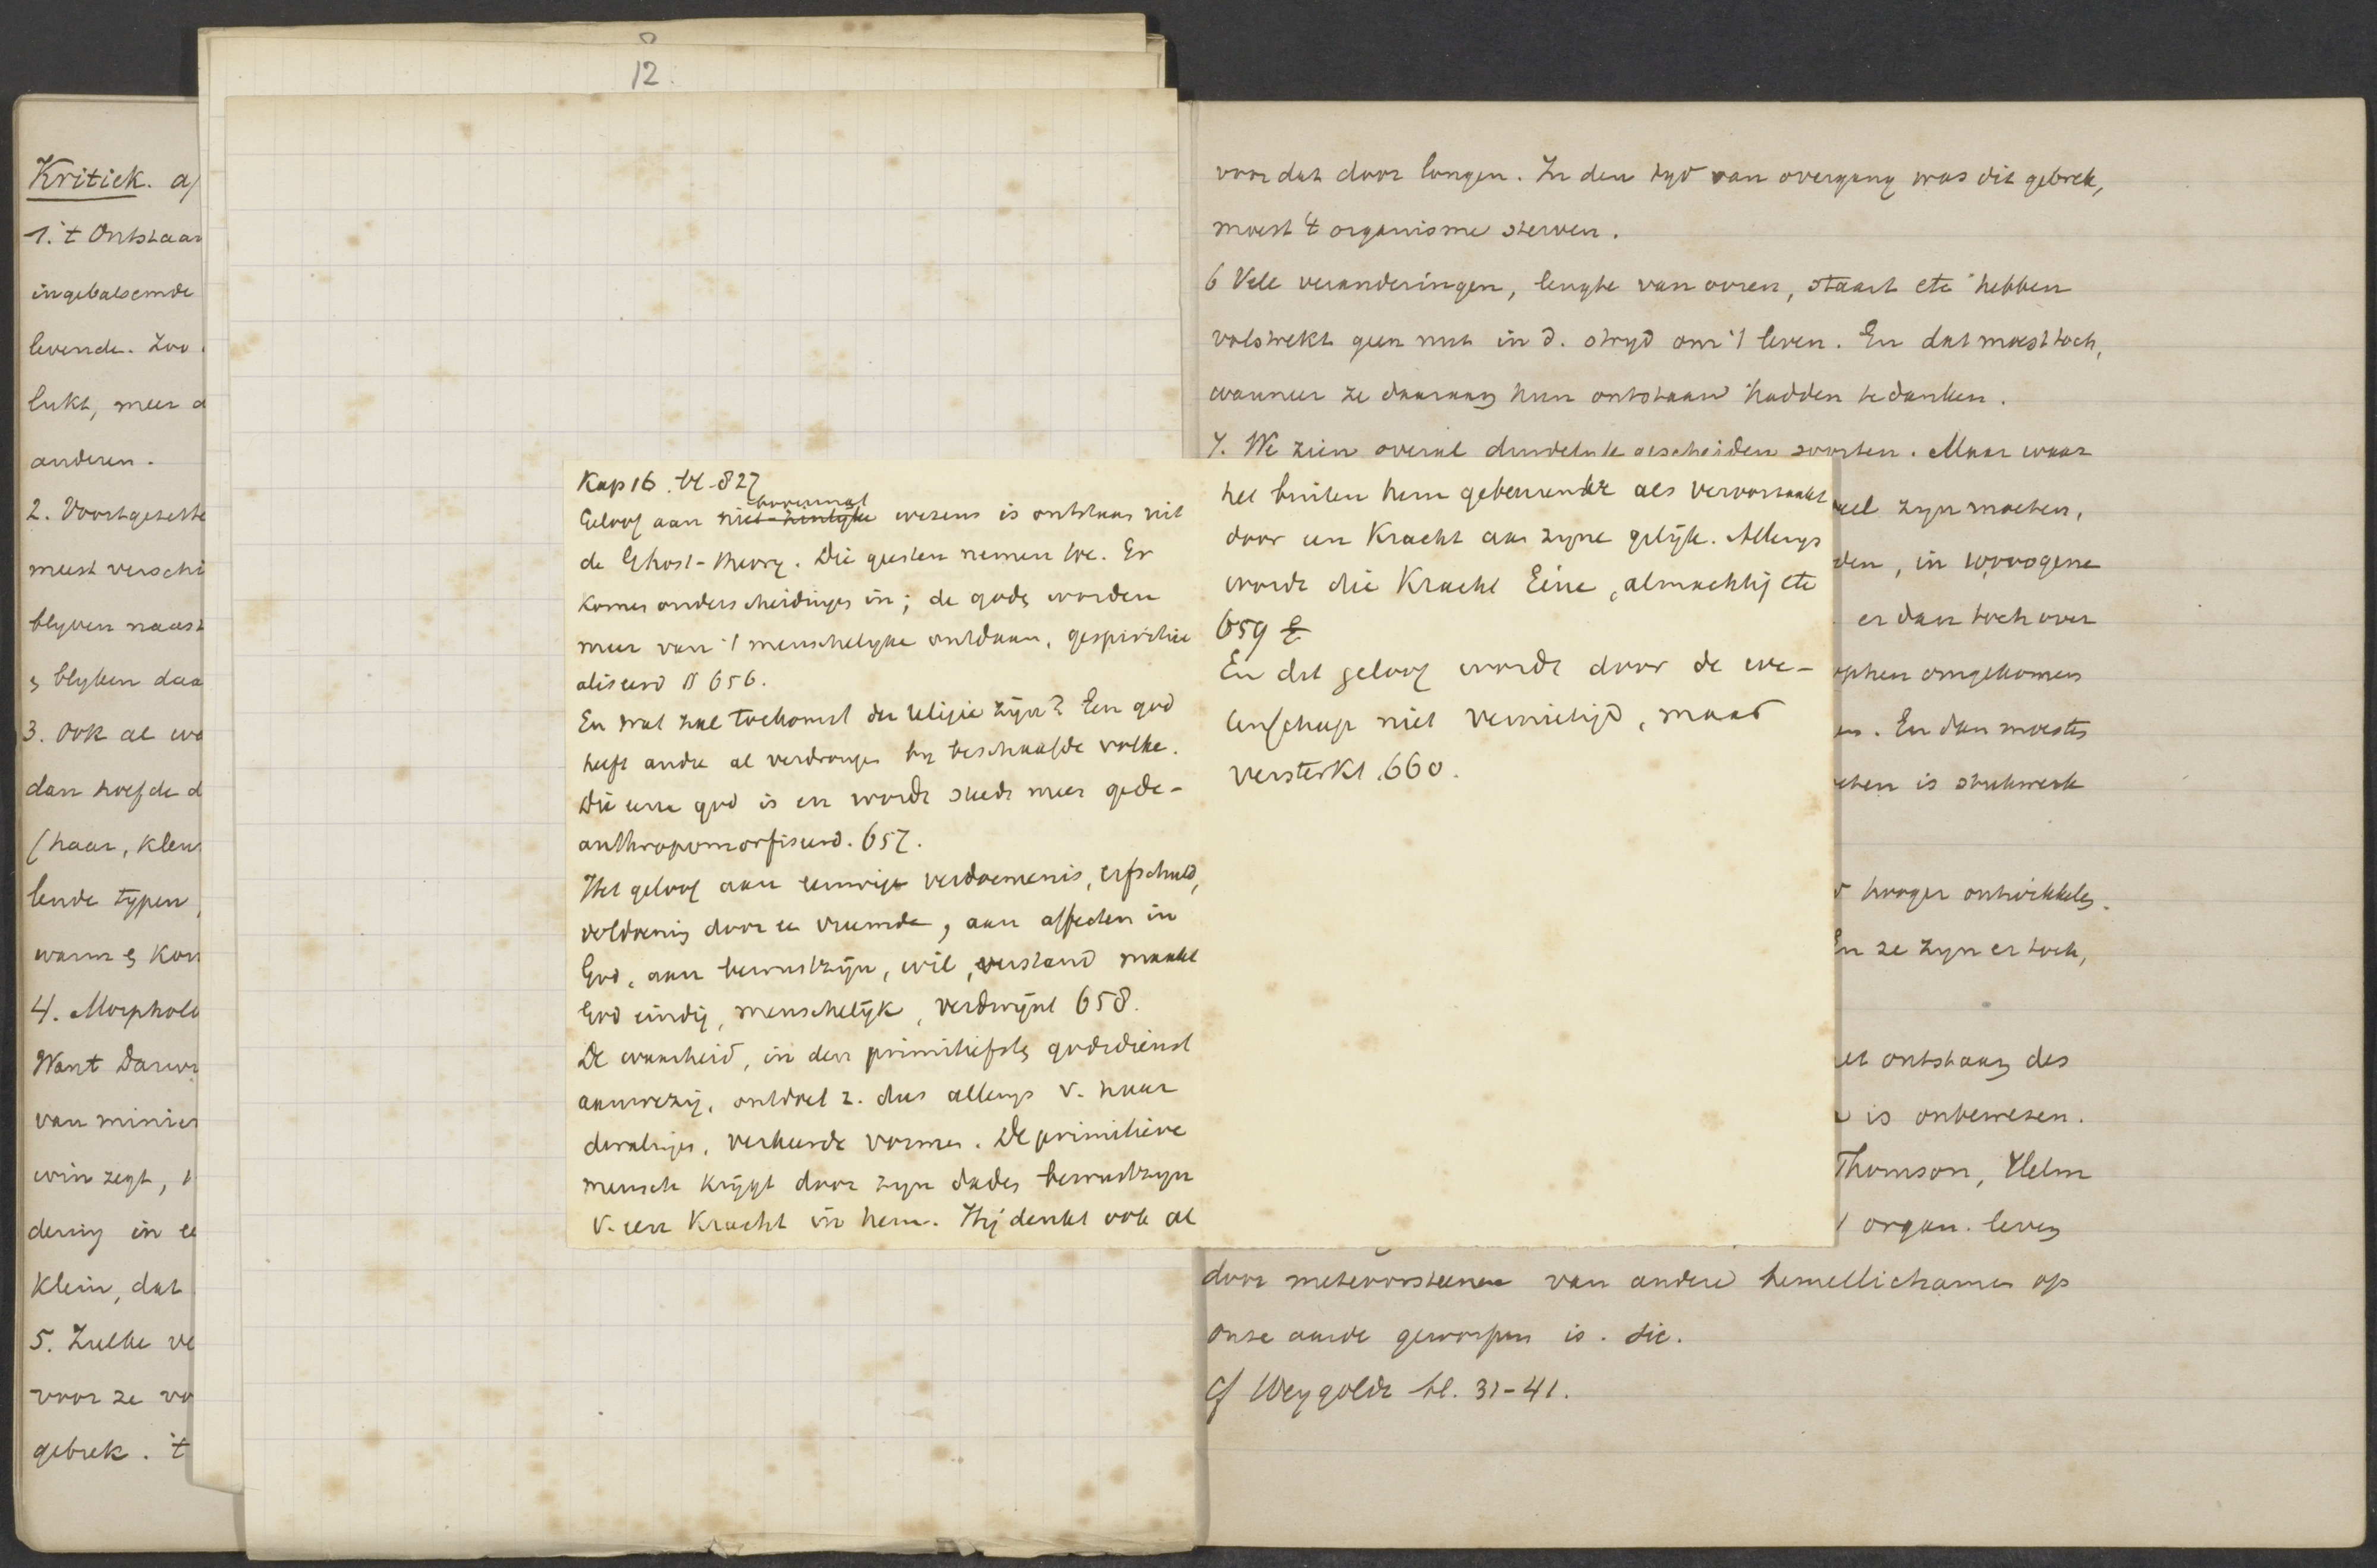 12.
Kritiek. a/
1. 't Ontstaan
ingebalsemde
levende. Zoo
lukt, meer
anderen.
2. Voortgezette
meest verschi
blyven naast
blyken daa
3. Ook al wo
dan hoefde d
(haar, kleur
lende typen,
warm kou
4. Morpholo
Want Darw
van minier
win zegt,
dering in ee
klein, dat
5. Zulke ve
voor ze vo
gebrek. 't
Kap 16. bl. 827
bovenmensl
Geloof aan niet-zinlyke wezens is ontstaan uit
de Ghost-theory. Die geesten nemen toe. Er
komen onderscheidingen in; de goden worden
meer van 't menschelyke ontdaan, gespiritu
aliseerd § 656.
En wat zal toekomst der religie zijn? Een god
heeft andre al verdrongen by beschaafde volke.
Die eene god is en wordt steeds meer gede-
anthropomorfiseerd. 657.
Het geloof aan eeuwige verdoemenis, erfschuld,
voldoening door een vreemde, aan affecten in
God, aan bewustzijn, wil, verstand maakt
God eindig, menschelijk, verdwijnt 658.
De waarheid, in den primitiefsten godsdienst
aanwezig, ontdoet z. dus allengs v. haar
dwalingen, verkeerde vormen. De primitieve
mensch krijgt door zyn daden bewustzyn
v. een Kracht in hem. Hij denkt ook al
het buiten hem gebeurende als veroorzaakt
door een Kracht aan zyne gelijk. Allengs
wordt die Kracht Eéne, almachtig etc
659
En dat geloof wordt door de we-
tenschap niet vernietigd, maar
versterkt. 660.
voor dat door longen. In den tyd van overgang was dit gebrek,
moest 't organisme sterven.
6 Vele veranderingen, lengte van ooren, staart etc hebben
volstrekt geen nut in d. stryd om 't leven. En dat moest toch,
wanneer ze daaraan hun ontstaan hadden te danken.
7. We zien overal duidelyk gescheiden soorten. Maar waar
veel zyn moeten,
den, in
er dan toch over
ophen omgekomen
En dan moesten
eten is stukwerk
hooger ontwikkelen.
En ze zyn er toch,
et ontstaan des
is onbewezen.
Thomson, Helm
organ. leven
door meteoorsteenen van andere hemellichamen op
onze aarde geworpen is. sic.
Cf Weygoldt bl. 31-41.